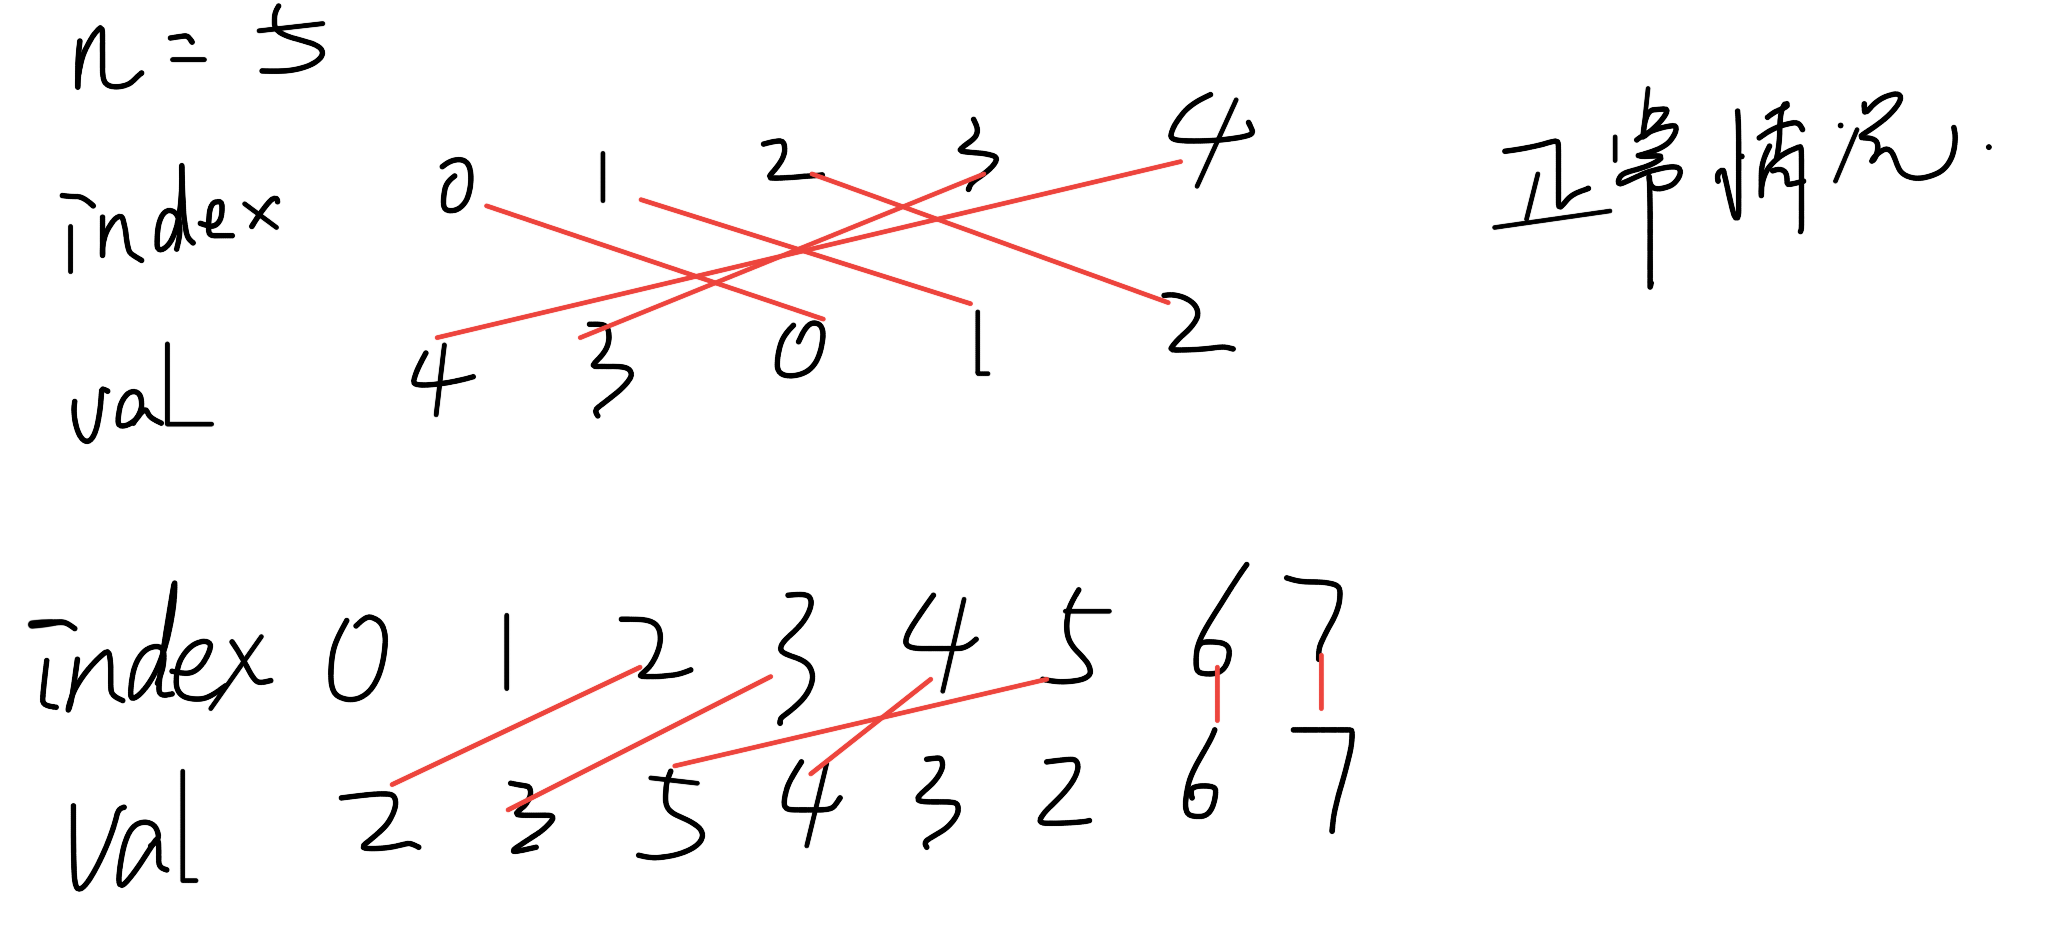 n = 5
index 0 1 2 3 4 正常情况.
val 4 3 0 1 2
index 0 1 2 3 4 5 6 7
val 2 3 5 4 3 2 6 7